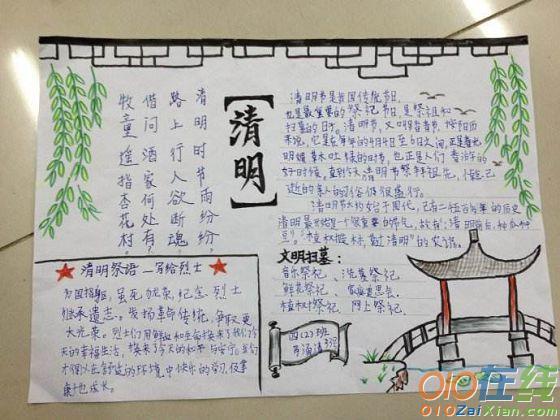 清明时节雨纷纷。
路上行人欲断魂
借问酒家何处有
牧童遥指杏花村。
【清明】
清明节是我国传统节日,
也是最重要的祭祀节日,是祭祖和
扫墓的日子。清明节,又叫踏青节,按阳历
来说,它是在每年的4月4日至6日之间,正是春光
明媚草木吐绿的时节,也正是人们春游的
好时候,
逝的亲人的习俗仍很盛行。
清明节大约始于周代,已有二千五百多年的历史
清明最开始是一个很重要的节气,
的农谚。
文明扫墓:
音乐祭祀、洗墓祭祀
鲜花祭祀、家庭追思会、
植树祭祀、网上祭祀。
四(2)班
★清明祭语—写给烈士★
为国捐躯,虽死犹荣,纪念烈士
继承遗志。发扬革命传统,争取更
大光荣。烈士们用鲜血和生命换来了我们今
天的幸福生活,换来了今天的和平与安宁。
才得以在舒适的环境中快乐的学习,健
康地成长。
010在线
010ZaiXian.com